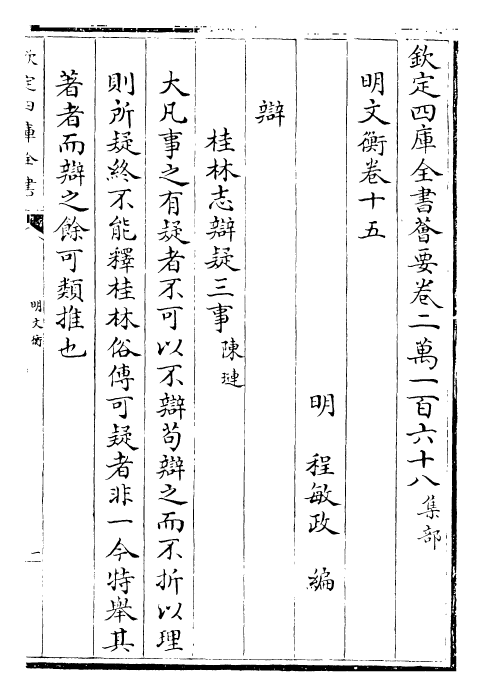 欽定四庫全書薈要卷二萬一百六十八集部
明文衡卷十五
明程敏政編
辯
桂林志辯疑三事陳璉
大凡事之有疑者不可以不辯苟辯之而不折以理
則所疑終不能釋桂林俗傳可疑者非一今特舉其
著者而辯之餘可類推也
欽定四庫全書
明文衡
一